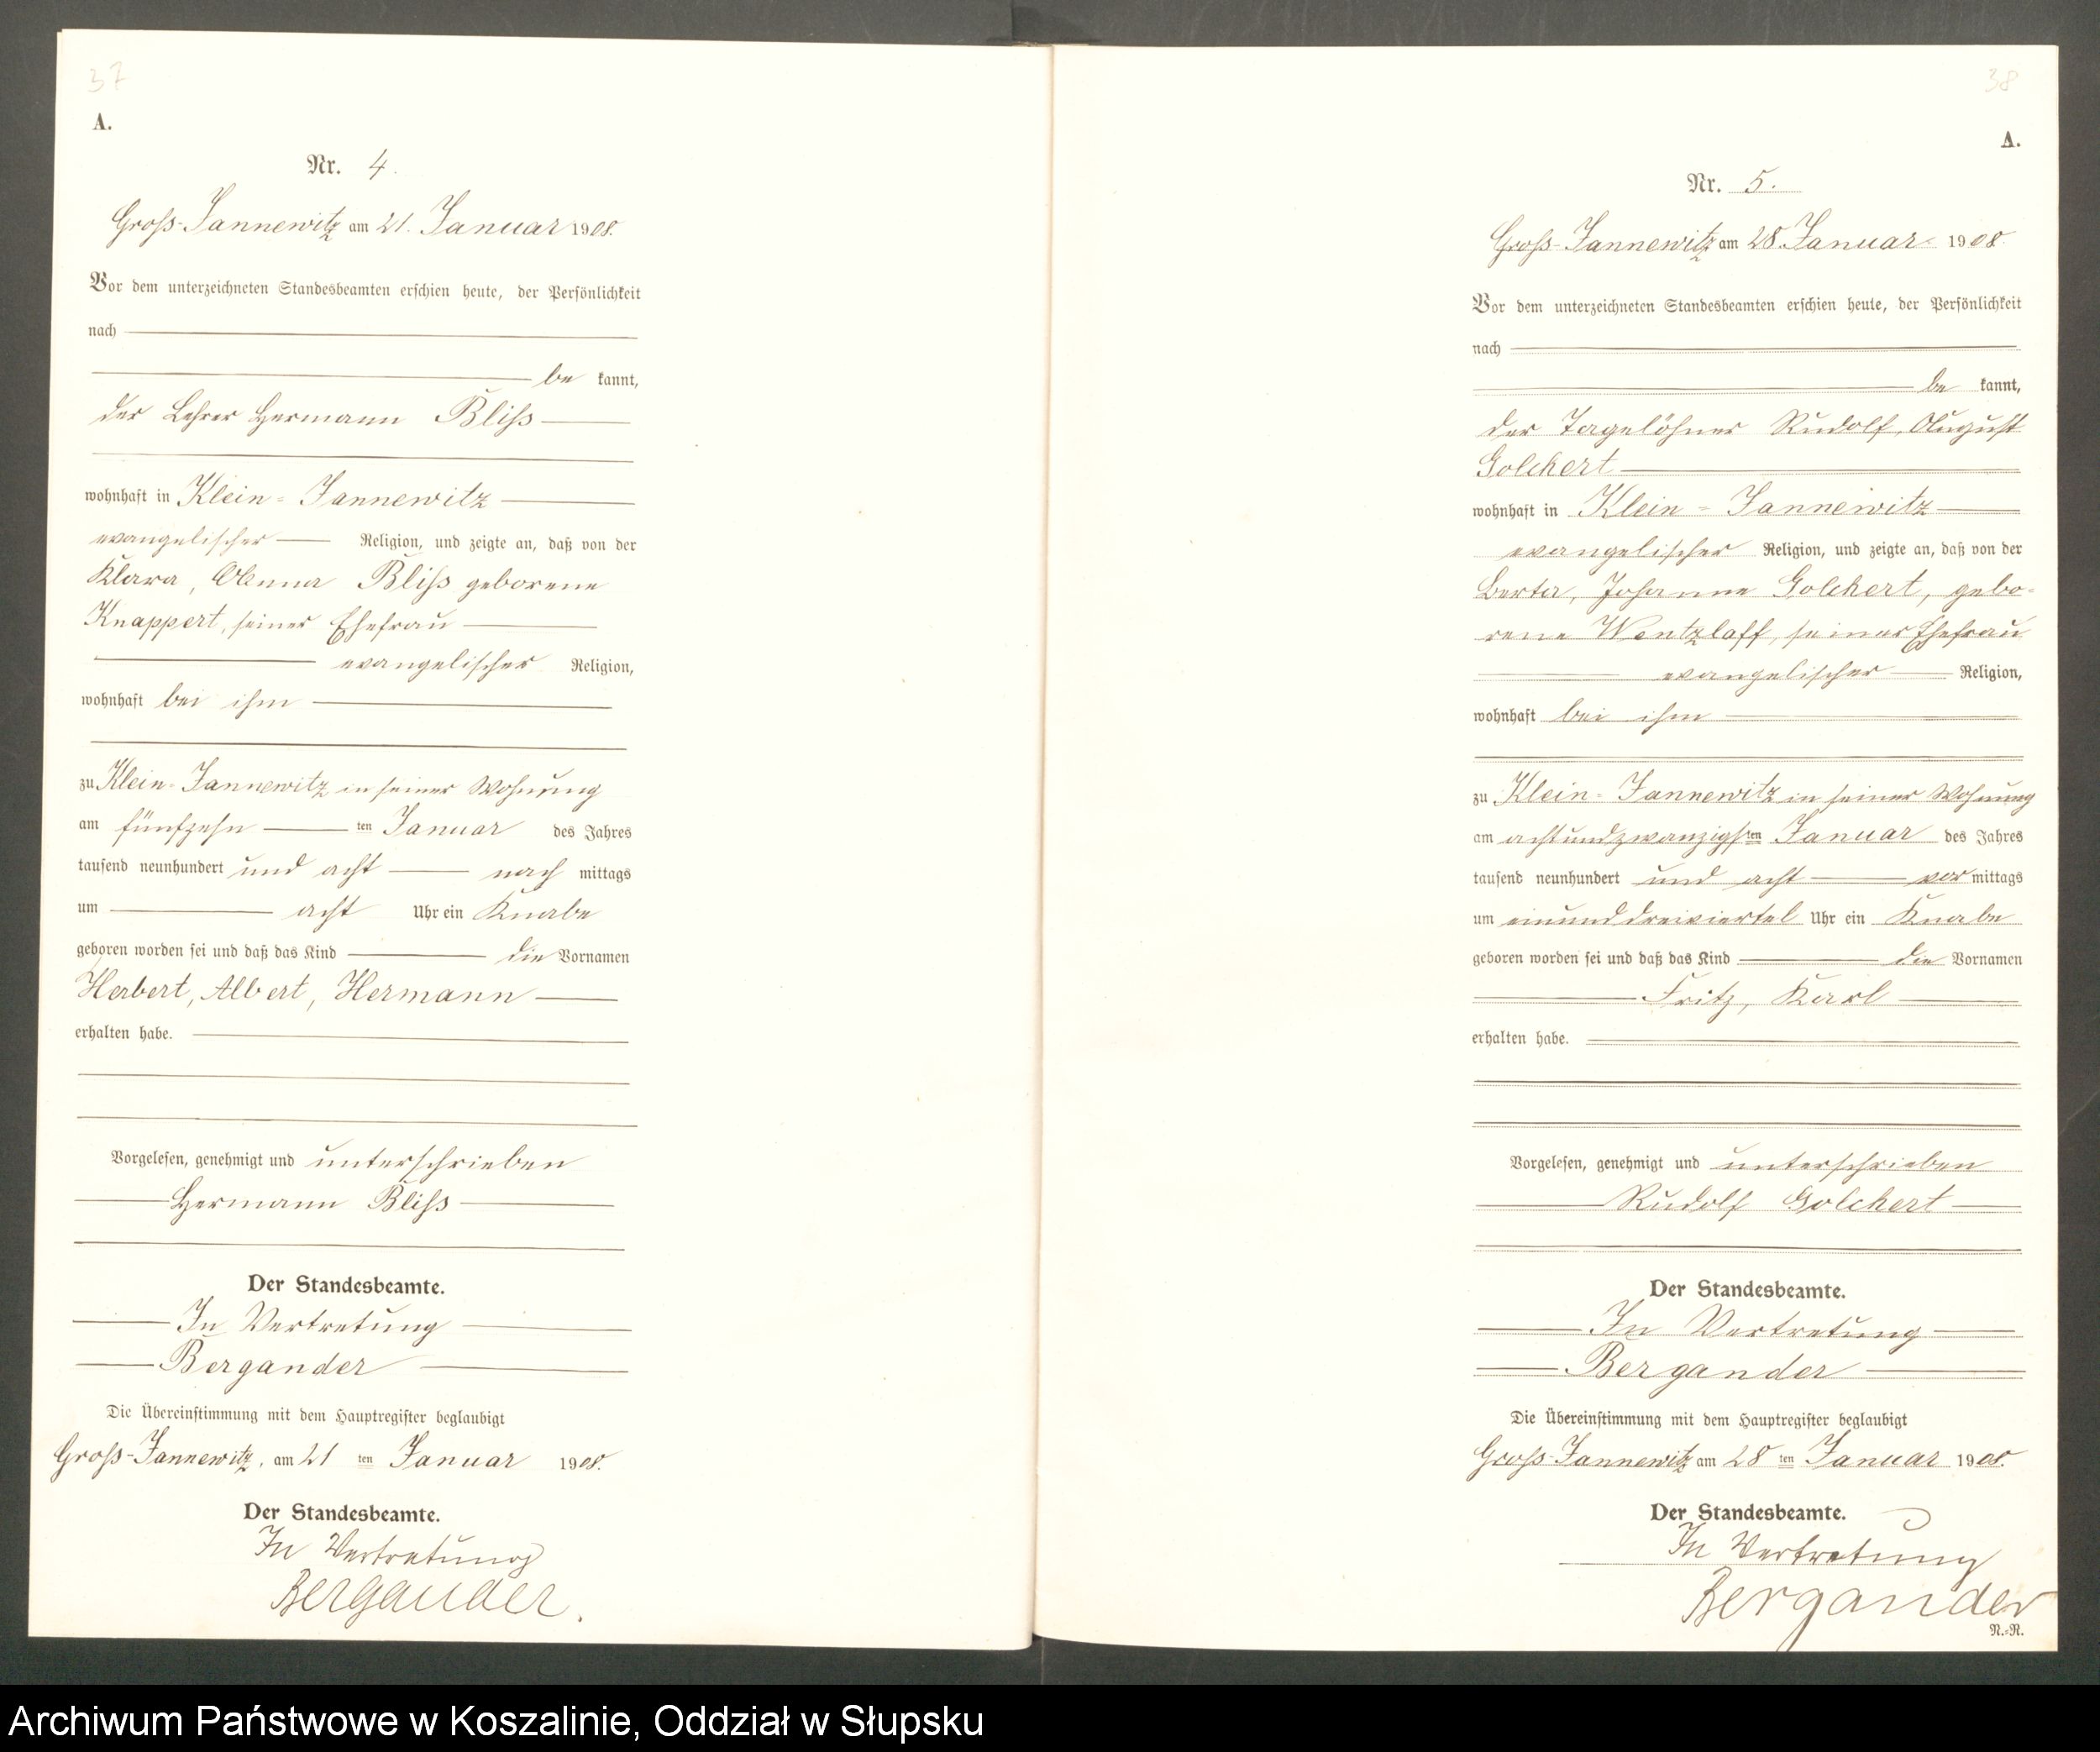 37
A.
Nr. 4.
Groß-Jannewitz am 21. Januar 1908.
Vor dem unterzeichneten Standesbeamten erschien heute, der Persönlichkeit
nach
be kannt,
der Lehrer Hermann Bliß
wohnhaft in Klein-Jannewitz
evangelischer Religion, und zeigte an, daß von der
Klara, Anna Bliß geborene
Knappert, seiner Ehefrau
evangelischer Religion,
wohnhaft bei ihm
zu Klein-Jannewitz in seiner Wohnung
am fünfzehn ten Januar des Jahres
tausend neunhundert und acht nach mittags
um acht Uhr ein Knabe
geboren worden sei und daß das Kind die Vornamen
Herbert, Albert, Hermann
erhalten habe.
Vorgelesen, genehmigt und unterschrieben
Hermann Bliß
Der Standesbeamte.
In Vertretung
Bergander
Die Übereinstimmung mit dem Hauptregister beglaubigt
Groß-Jannewitz, am 21 ten Januar 1908.
Der Standesbeamte.
In Vertretung
Bergander.
38
A.
Nr. 5.
Groß-Jannewitz am 28. Januar 1908.
Vor dem unterzeichneten Standesbeamten erschien heute, der Persönlichkeit
nach
be kannt,
der Tagelöhner Rudolf, August
Golchert
wohnhaft in Klein-Jannewitz
evangelischer Religion, und zeigte an, daß von der
Berta, Johanne Golchert, gebo-
rene Wentzlaff, seiner Ehefrau
evangelischer Religion,
wohnhaft bei ihm
zu Klein-Jannewitz in seiner Wohnung
am achtundzwanzigsten Januar des Jahres
tausend neunhundert und acht vor mittags
um einunddreiviertel Uhr ein Knabe
geboren worden sei und daß das Kind die Vornamen
Fritz, Karl
erhalten habe.
Vorgelesen, genehmigt und unterschrieben
Rudolf Golchert
Der Standesbeamte.
In Vertretung
Bergander
Die Übereinstimmung mit dem Hauptregister beglaubigt
Groß-Jannewitz am 28 ten Januar 1908.
Der Standesbeamte.
In Vertretung
Bergander
N.-R.
Archiwum Państwowe w Koszalinie, Oddział w Słupsku